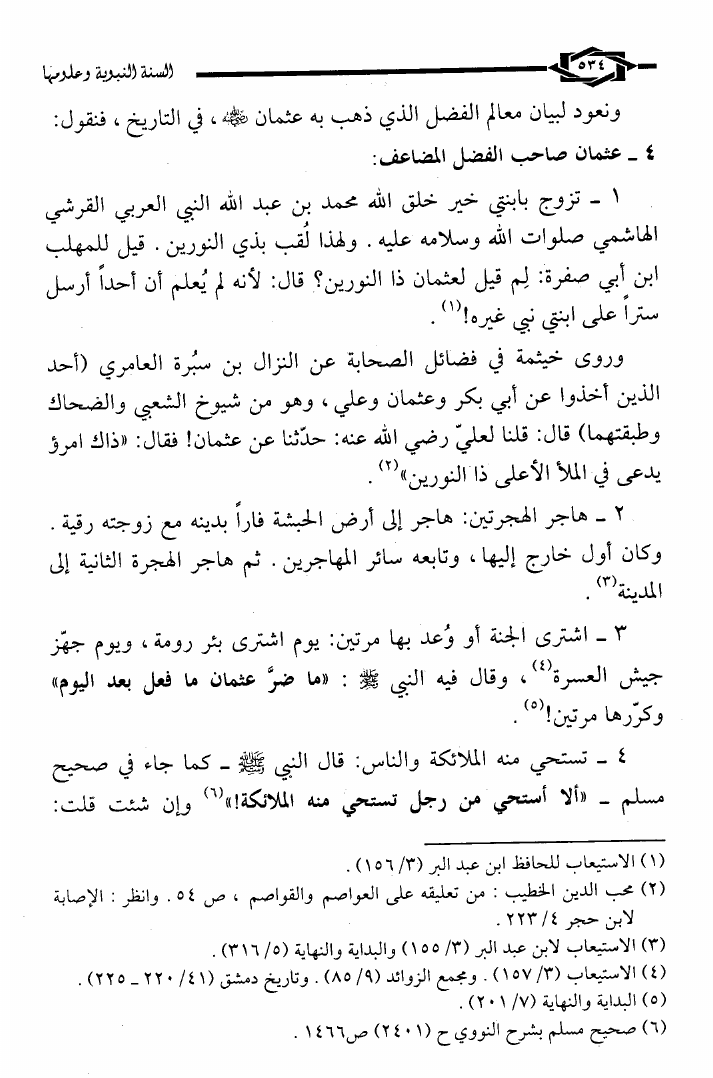 السنة النبوية وعلومها ٥٣٤
ونعود لبيان معالم الفضل الذي ذهب به عثمان رضي الله عنه، في التاريخ، فنقول:
٤ ـ عثمان صاحب الفضل المضاعف:
١ ـ تزوج بابنتي خير خلق الله محمد بن عبد الله النبي العربي القرشي
الهاشمي صلوات الله وسلامه عليه. ولهذا لُقب بذي النورين. قيل للمهلب
ابن أبي صفرة: لِم قيل لعثمان ذا النورين؟ قال: لأنه لم يُعلم أن أحداً أرسل
ستراً على ابنتي نبي غيره!(١).
وروى خيثمة في فضائل الصحابة عن النزال بن سبُرة العامري (أحد
الذين أخذوا عن أبي بكر وعثمان وعلي، وهو من شيوخ الشعبي والضحاك
وطبقتهما) قال: قلنا لعليّ رضي الله عنه: حدّثنا عن عثمان! فقال: «ذاك امرؤ
يدعى في الملأ الأعلى ذا النورين»(٢).
٢ ـ هاجر الهجرتين: هاجر إلى أرض الحبشة فاراً بدينه مع زوجته رقية.
وكان أول خارج إليها، وتابعه سائر المهاجرين. ثم هاجر الهجرة الثانية إلى
المدينة(٣).
٣ ـ اشترى الجنة أو وُعد بها مرتين: يوم اشترى بئر رومة، ويوم جهّز
جيش العسرة(٤)، وقال فيه النبي ﷺ: «ما ضرَّ عثمان ما فعل بعد اليوم»
وكرّرها مرتين!(٥).
٤ ـ تستحي منه الملائكة والناس: قال النبي ﷺ ـ كما جاء في صحيح
مسلم ـ «ألا أستحي من رجل تستحي منه الملائكة!»(٦) وإن شئت قلت:
(١) الاستيعاب للحافظ ابن عبد البر (٣/ ١٥٦).
(٢) محب الدين الخطيب: من تعليقه على العواصم والقواصم، ص ٥٤. وانظر: الإصابة
لابن حجر ٤/ ٢٢٣.
(٣) الاستيعاب لابن عبد البر (٣/ ١٥٥) والبداية والنهاية (٥/ ٣١٦).
(٤) الاستيعاب (٣/ ١٥٧). ومجمع الزوائد (٩/ ٨٥). وتاريخ دمشق (٤١/ ٢٢٠ ـ ٢٢٥).
(٥) البداية والنهاية (٧/ ٢٠١).
(٦) صحيح مسلم بشرح النووي ح (٢٤٠١) ص١٤٦٦.